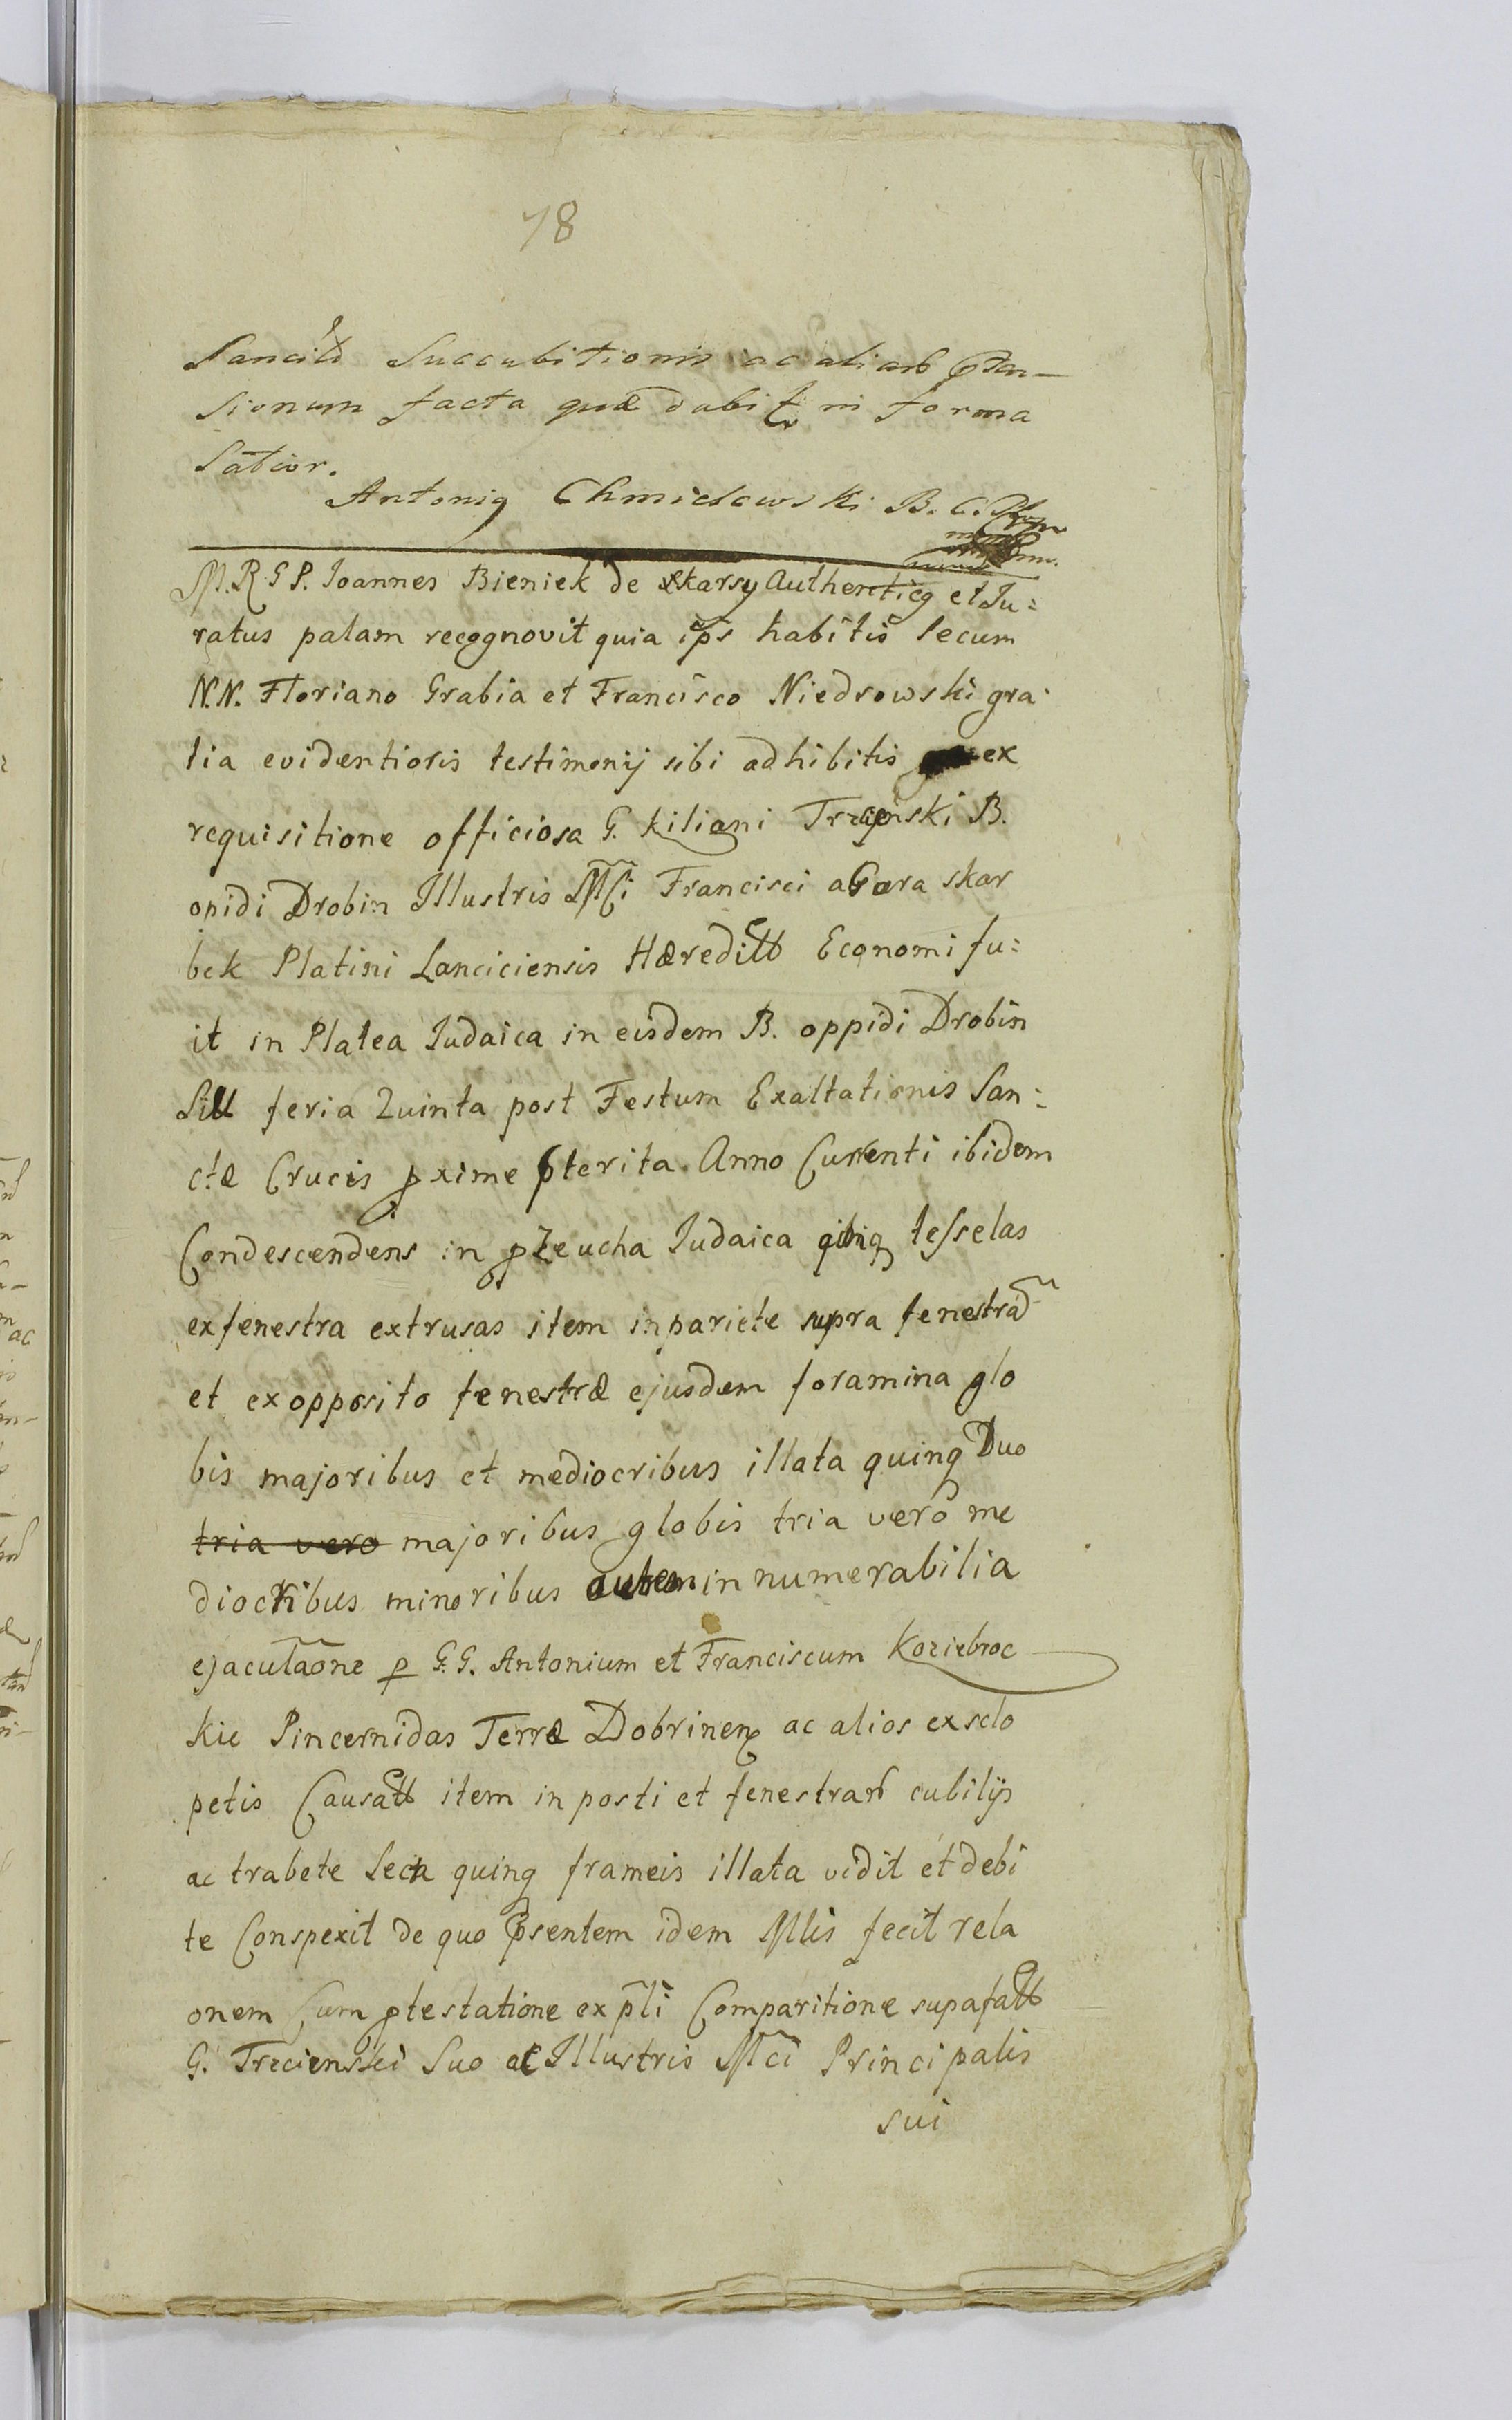 78
Succubitionis ac aliarb
sionum facta quæ dabit in forma
Antonig Chmielewski B. C.
M.R G P. Joannes Bieniek de Skarsy Authenticg et Ju:
ratus palam recognovit quia ips habitis secum
N.N. Floriano Grabia et Francisco Niedrowski gra
tia evidentioris testimonij sibi adhibitis ex
requisitione officiosa G. Kiliani B.
opidi Drobin Illustris Mci Francisci a Gora skar
bek Platini Lanciciensis Hæredittb Economi fu:
it in Platea Judaica in eisdem B. oppidi Drobin
feria Quinta post Festum Exaltationis San:
ctæ Crucis pxime pterita Anno Currenti ibidem
Condescendens in pzeucha Judaica tesselas
ex fenestra extrusas item in pariete supra fenestrã
et ex opposito fenestræ ejusdem foramina glo
bis majoribus et mediocribus illata quinq Duo
tria vero majoribus globis tria vero me
diocribus minoribus autem innumerabilia
ejaculaõne p G.G. Antonium et Franciscum Koziebroc
kie Pincernidas Terræ Dobrinen ac alios ex sclo
petis Causattb item in posti et fenestrarb cubilijs
ac trabete secta quinq frameis illata vidit et debi
te Conspexit de quo psentem idem Mlis fecit rela
onem Cum ptestatione ex pti Comparitione supafattb
G. Trzcienski Suo ac Illustris Mci Principalis
sui